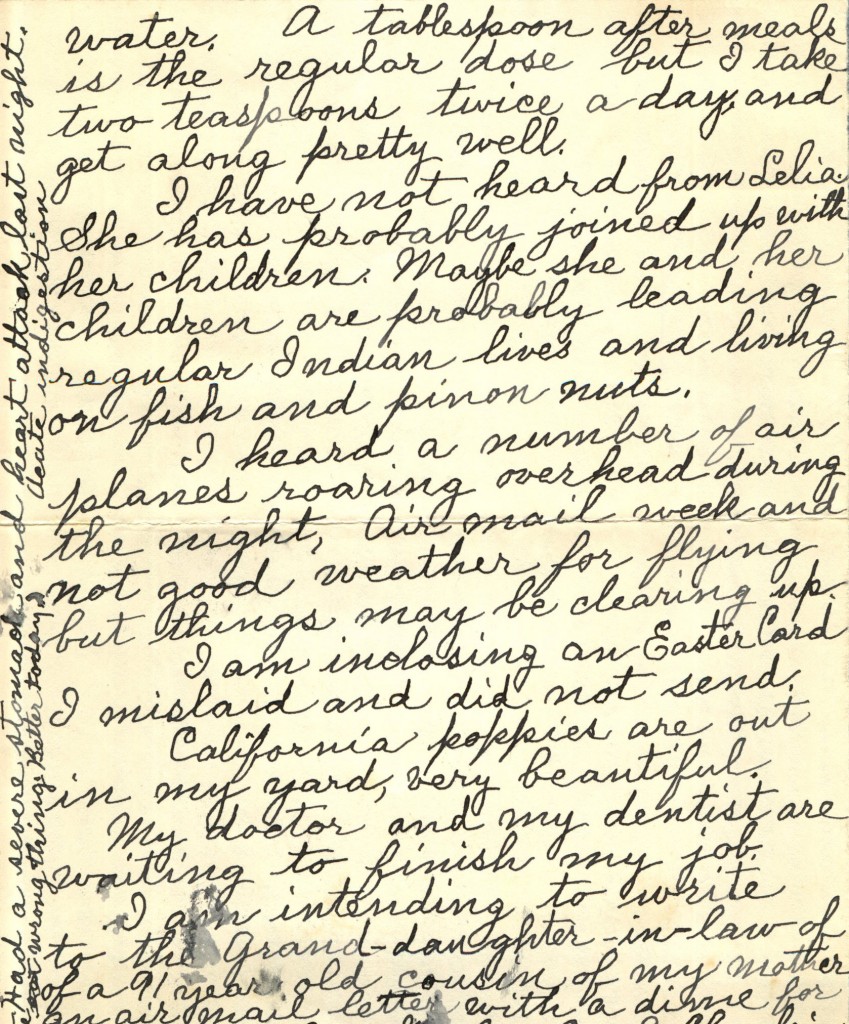 water. A tablespoon after meals
is the regular dose but I take
two teaspoons twice a day, and
get along pretty well.
I have not heard from Lelia.
She has probably joined up with
her children. Maybe she and her
children are probably leading
regular Indian lives and living
on fish and pinon nuts.
I heard a number of air
planes roaring overhead during
the night, Air mail week and
not good weather for flying
but things may be clearing up.
I am inclosing an Easter Card
I mislaid and did not send.
California poppies are out
in my yard, very beautiful.
My doctor and my dentist are
waiting to finish my job.
I am intending to write
to the Grand-daughter-in-law of
of a 91 year old cousin of my mother
an air mail letter with a dime for
Had a severe stomach and heart attack last night.
Acute indigestion
eat wrong things Better today.